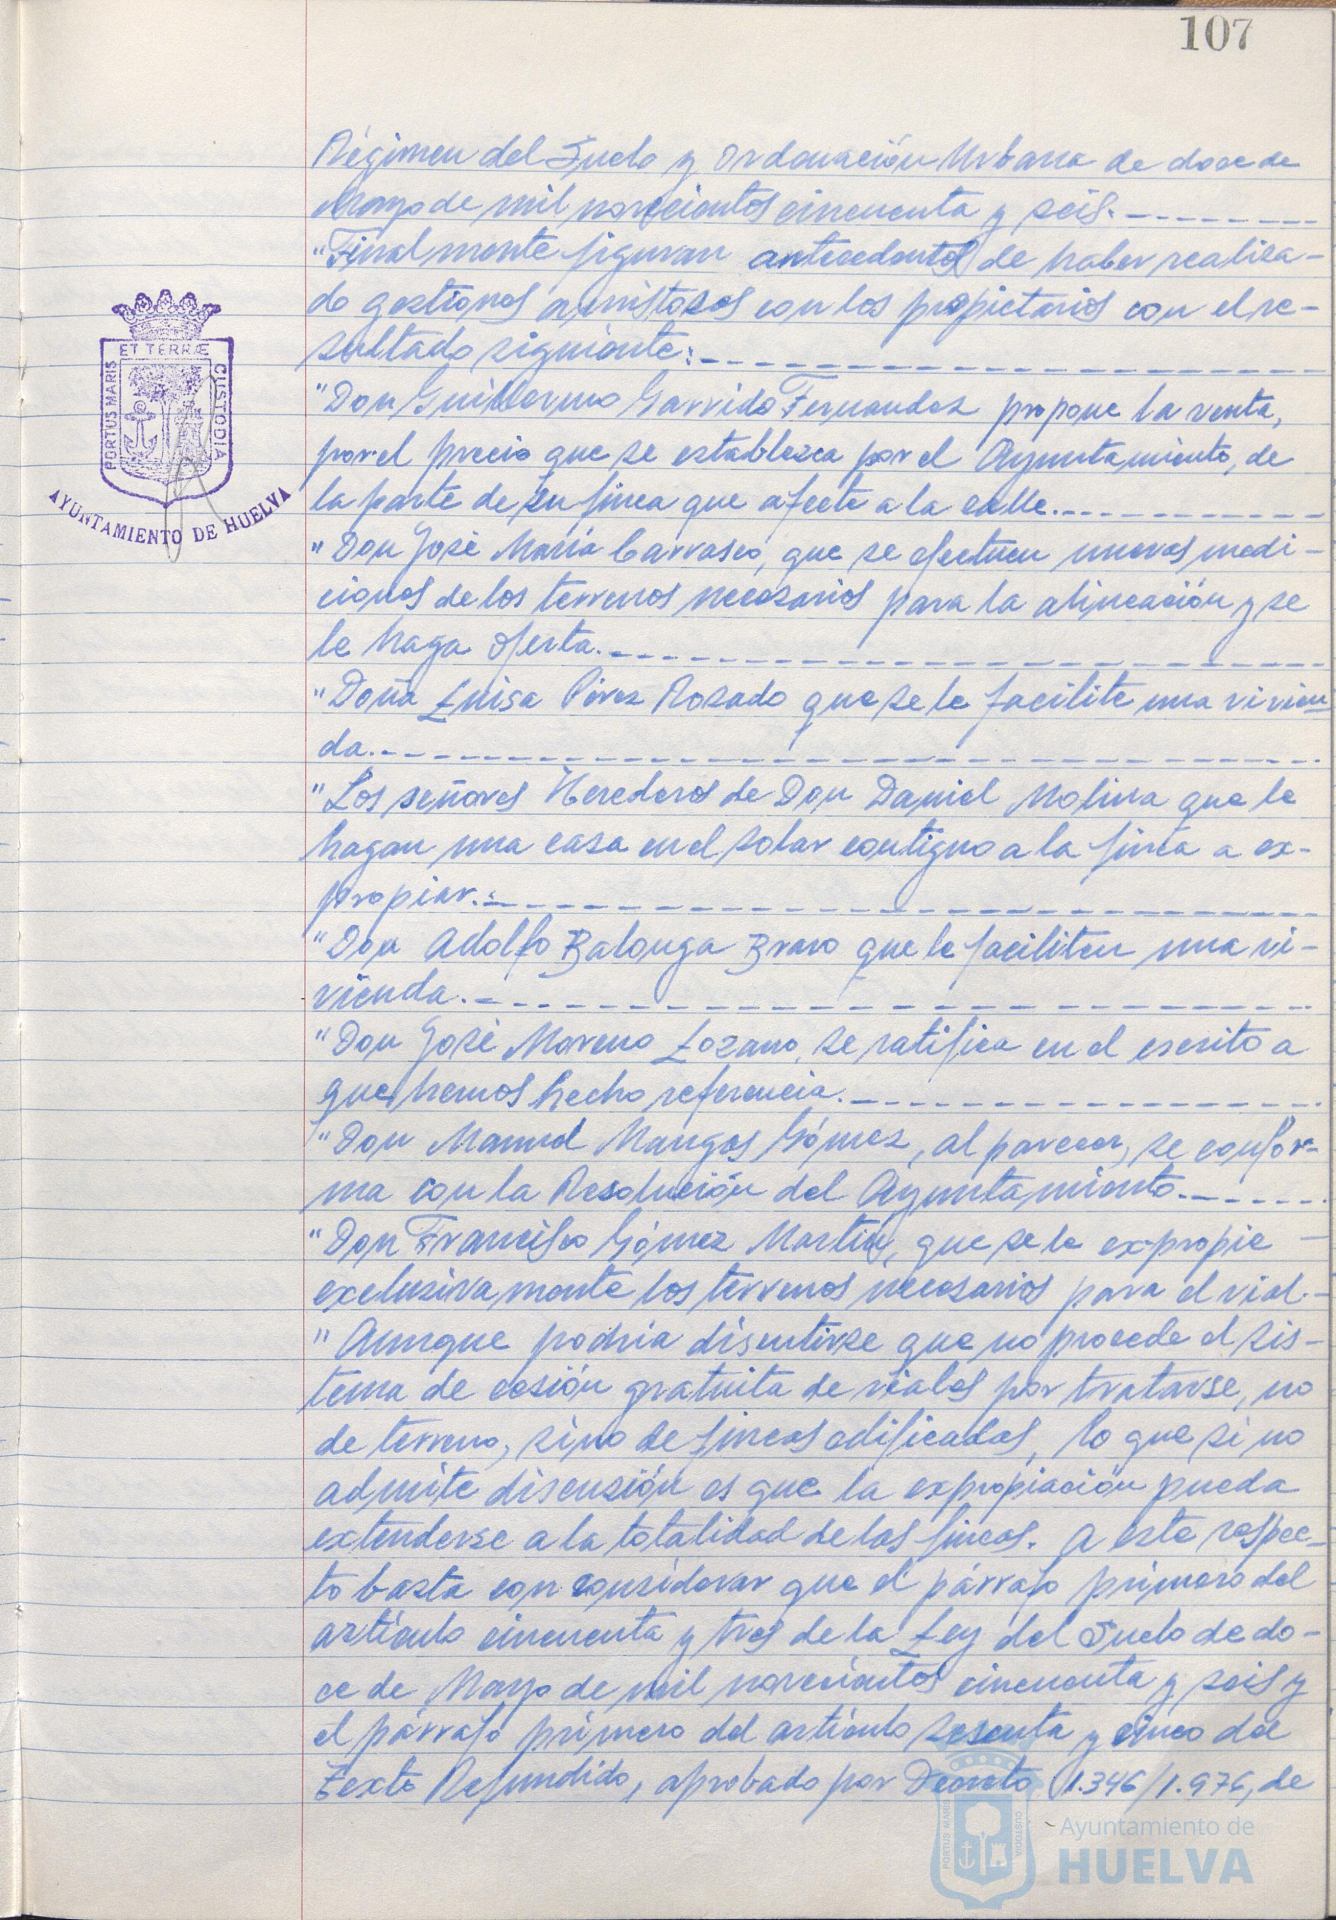 107
Régimen del Suelo y Ordenación Urbana de doce de
Mayo de mil novecientos cincuenta y seis.
"Finalmente figuran antecedentes de haber realiza-
do gestiones amistosas con los propietarios con el re-
sultado siguiente:
"Don Guillermo Garrido Fernandez propone la venta,
por el precio que se establezca por el Ayuntamiento, de
la parte de su finca que afecte a la calle.
"Don José María Carrasco, que se efectuen nuevas medi-
ciones de los terrenos necesarios para la alineación y se
le haga oferta.
"Doña Luisa Pérez Rosado que se le facilite una vivien
da.
"Los señores Herederos de Don Daniel Molina que le
hagan una casa en el solar contiguo a la finca a ex-
propiar.
"Don Adolfo Balonga Bravo que le faciliten una vi-
vienda.
"Don José Moreno Lozano, se ratifica en el escrito a
que hemos hecho referencia.
"Don Manuel Mangas Gómez, al parecer, se confor-
ma con la Resolución del Ayuntamiento.
"Don Francisco Gómez Martín, que se le expropie
exclusivamente los terrenos necesarios para el vial.
"Aunque podría discutirse que no procede el sis-
tema de cesión gratuita de viales por tratarse, no
de terreno, sino de fincas edificadas, lo que si no
admite discusión es que la expropiación pueda
extenderse a la totalidad de las fincas. A este respec-
to basta con considerar que el párrafo primero del
artículo cincuenta y tres de la Ley del Suelo de do-
ce de Mayo de mil novecientos cincuenta y seis y
el párrafo primero del artículo sesenta y cinco del
Texto Refundido, aprobado por Decreto 1.346/1.976, de
PORTUS MARIS ET TERRÆ CUSTODIA
AYUNTAMIENTO DE HUELVA
PORTUS MARIS CUSTODIA
Ayuntamiento de
HUELVA